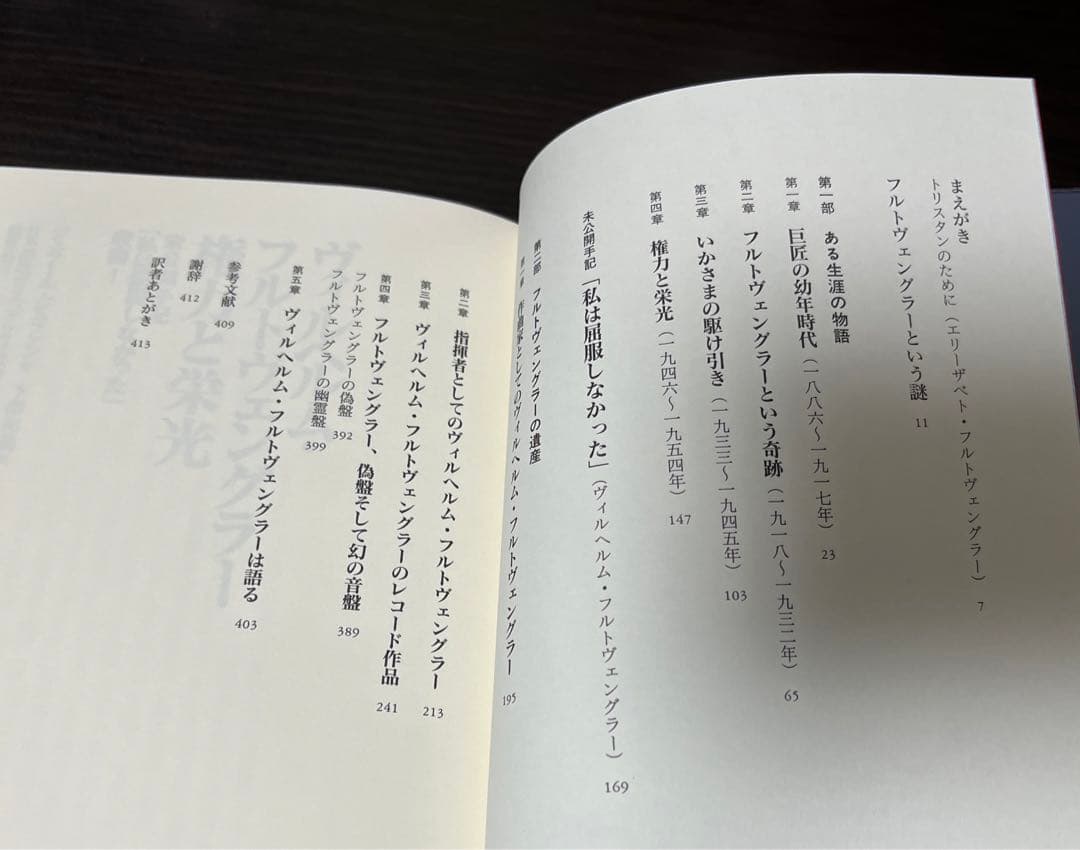 まえがき
トリスタンのために（エリーザベト・フルトヴェングラー） 7
フルトヴェングラーという謎 11
第一部 ある生涯の物語
第一章 巨匠の幼年時代（一八八六〜一九一七年） 23
第二章 フルトヴェングラーという奇跡（一九一八〜一九三二年） 65
第三章 いかさまの駆け引き（一九三三〜一九四五年） 103
第四章 権力と栄光（一九四六〜一九五四年） 147
未公開手記「私は屈服しなかった」（ヴィルヘルム・フルトヴェングラー） 169
第二部 フルトヴェングラーの遺産
第一章 作曲家としてのヴィルヘルム・フルトヴェングラー 195
第二章 指揮者としてのヴィルヘルム・フルトヴェングラー 213
第三章 ヴィルヘルム・フルトヴェングラーのレコード作品 241
第四章 フルトヴェングラー、偽盤そして幻の音盤 389
フルトヴェングラーの偽盤 392
フルトヴェングラーの幽霊盤 399
第五章 ヴィルヘルム・フルトヴェングラーは語る 403
参考文献 409
謝辞 412
訳者あとがき 413
ヴィルヘルム
フルトヴェングラー
権力と栄光